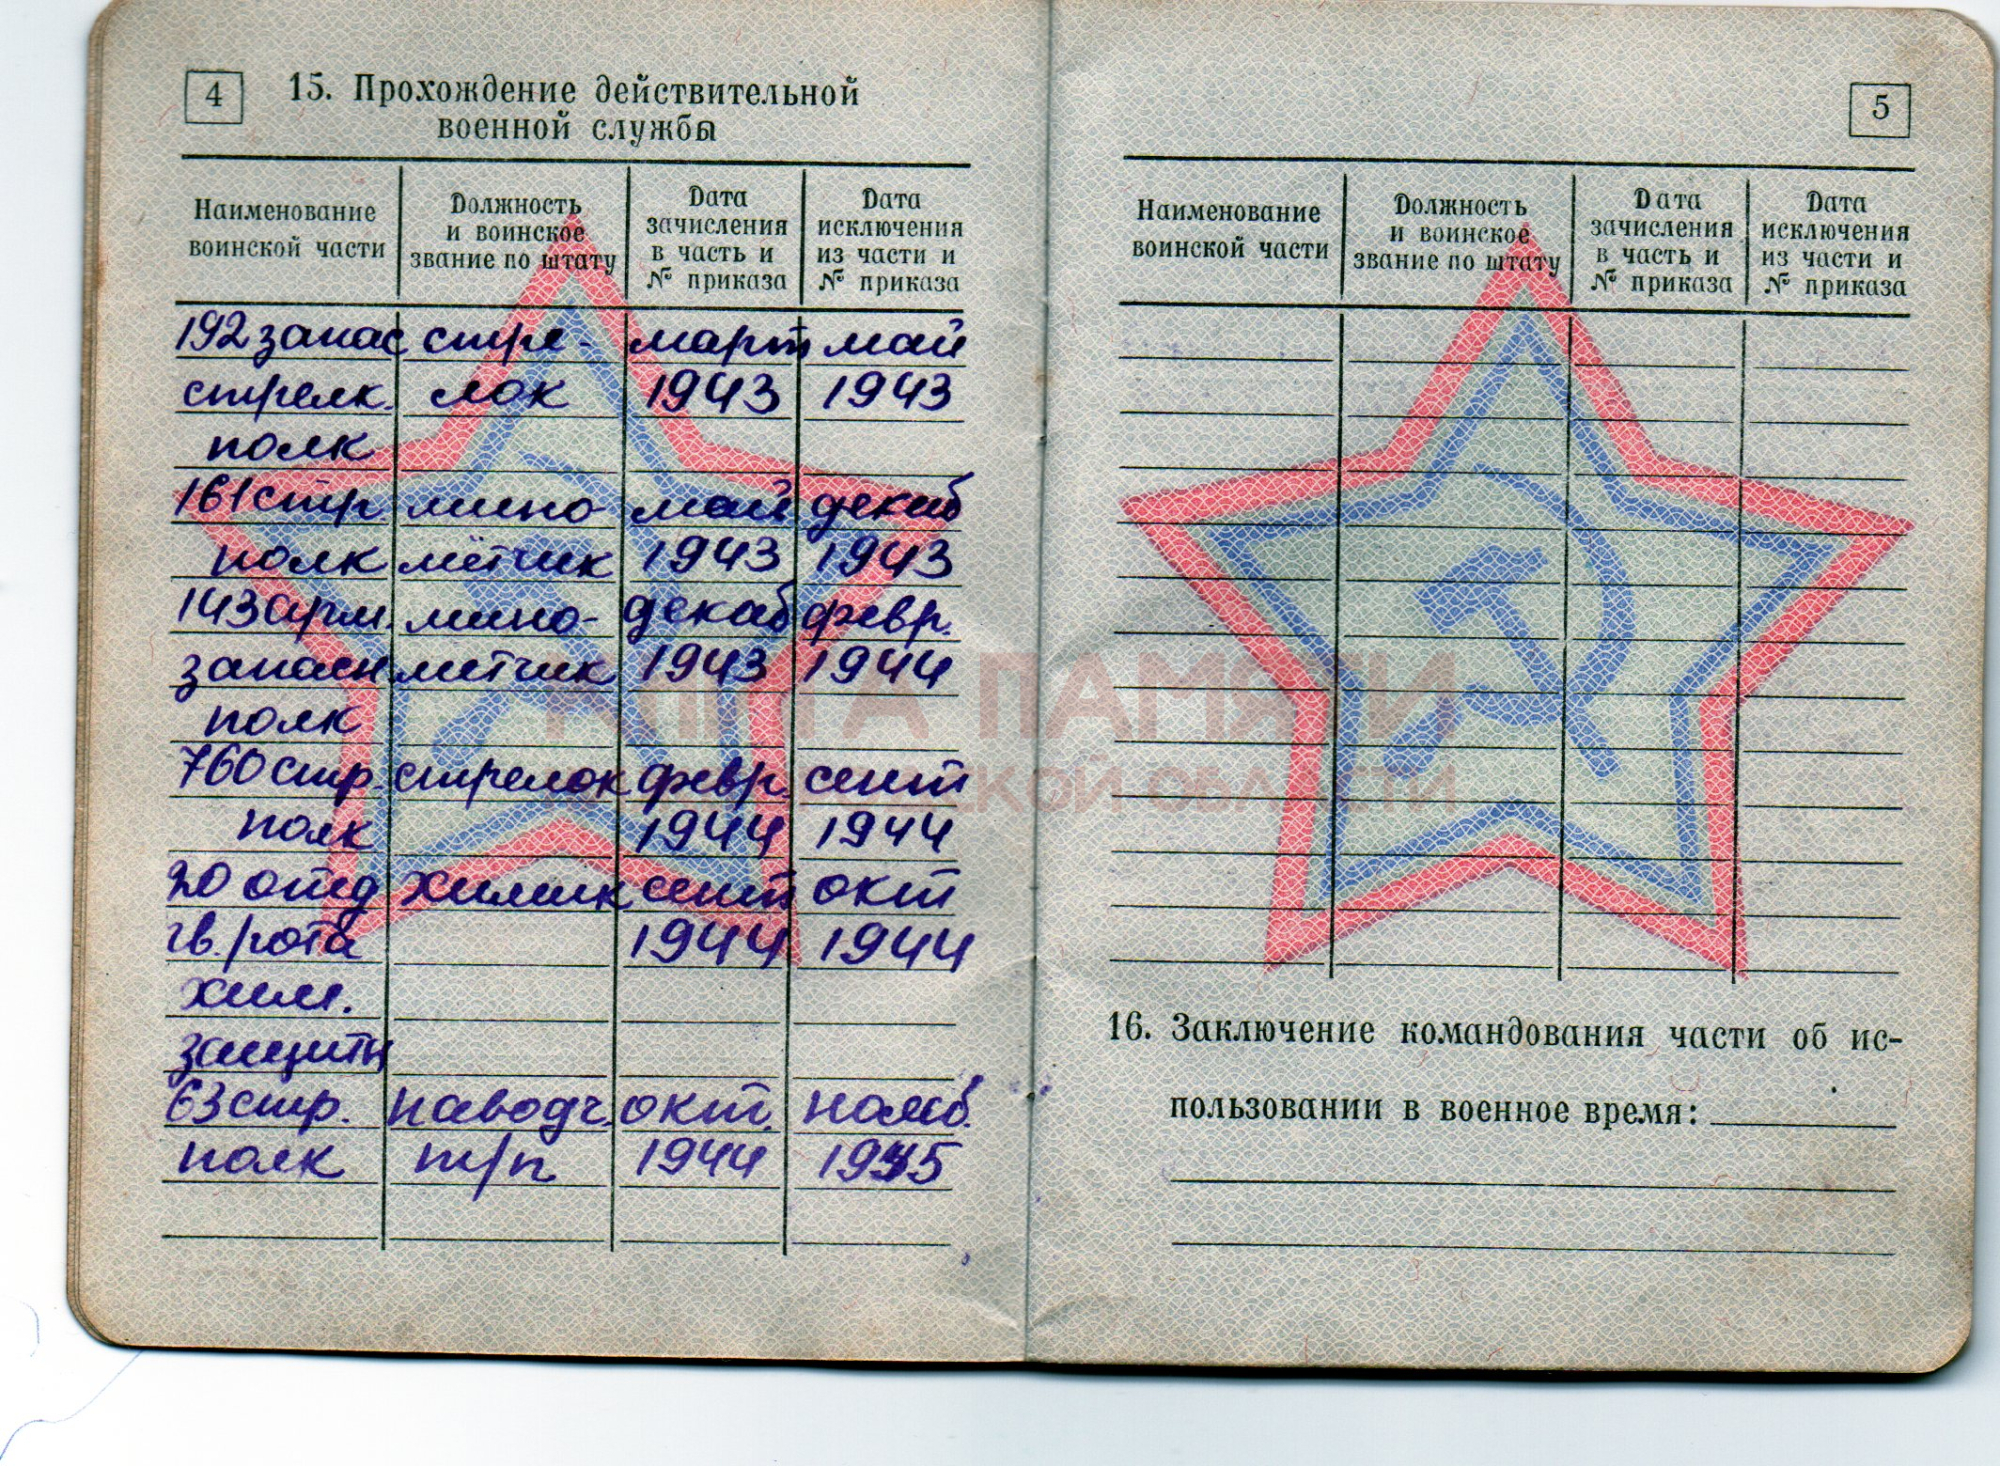 4
15. Прохождение действительной
военной службы
Наименование
воинской части
Должность
и воинское
звание по штату
Дата
зачисления
в часть и
№ приказа
Дата
исключения
из части и
№ приказа
192 запас стре- март май
стрелк. лок 1943 1943
полк
161 стр мино май декаб
полк мётчик 1943 1943
143 арм. мино- декаб февр.
запасн метчик 1943 1944
полк
760 стр. стрелок февр. сент
полк 1944 1944
20 отд химик сент окт
гв. рота 1944 1944
хим.
защиты
63 стр. наводч. окт.
полк т/п 1944 1945
5
Наименование
воинской части
Должность
и воинское
звание по штату
Дата
зачисления
в часть и
№ приказа
Дата
исключения
из части и
№ приказа
16. Заключение командования части об ис-
пользовании в военное время:
ПАМЯТИ
ОБЛАСТИ